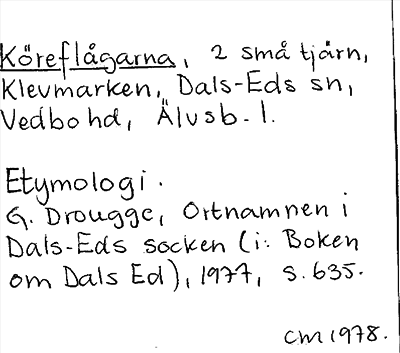 Köreflågarna, 2 små tjärn,
Klevmarken, Dals-Eds sn,
Vedbo hd, Älvsb. l.
Etymologi.
G. Drougge, Ortnamnen i
Dals-Eds socken (i: Boken
om Dals Ed), 1977, s. 635.
CM 1978.